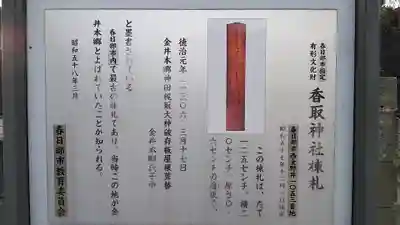 春日部市指定
有形文化財
香取神社棟札
春日部市西金野井一〇五三番地
この棟札は、たて
一二五センチ、横二
〇センチ、厚さ〇・
六センチの
徳治元年(一三〇六)三月十七日
金井本郷神田梶取大神破存板屋根葺替
金井本郷
と墨書されている。
春日部市内で最古の棟札であり、当時この地が金
井本郷とよばれていたことが知られる。
昭和五十八年三月
春日部市教育委員会